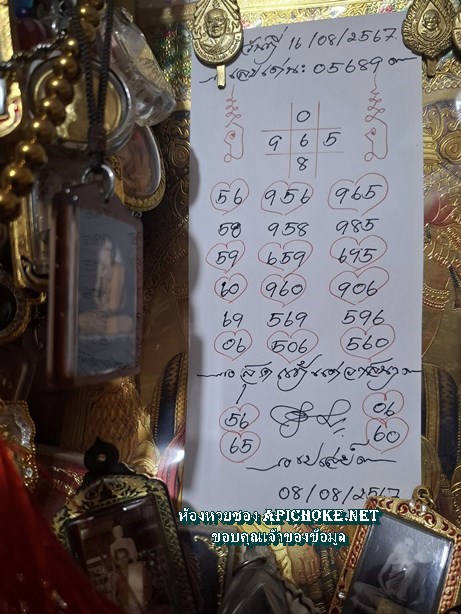 วันที่ 16/08/2567
เลขเด่น: 05689
0
9 6 5
8
56 956 965
58 958 985
59 659 695
60 960 906
69 569 596
06 506 560
56 06
65 60
08/08/2567
ห้องหวยซอง APICHOKE.NET
ขอบคุณเจ้าของข้อมูล